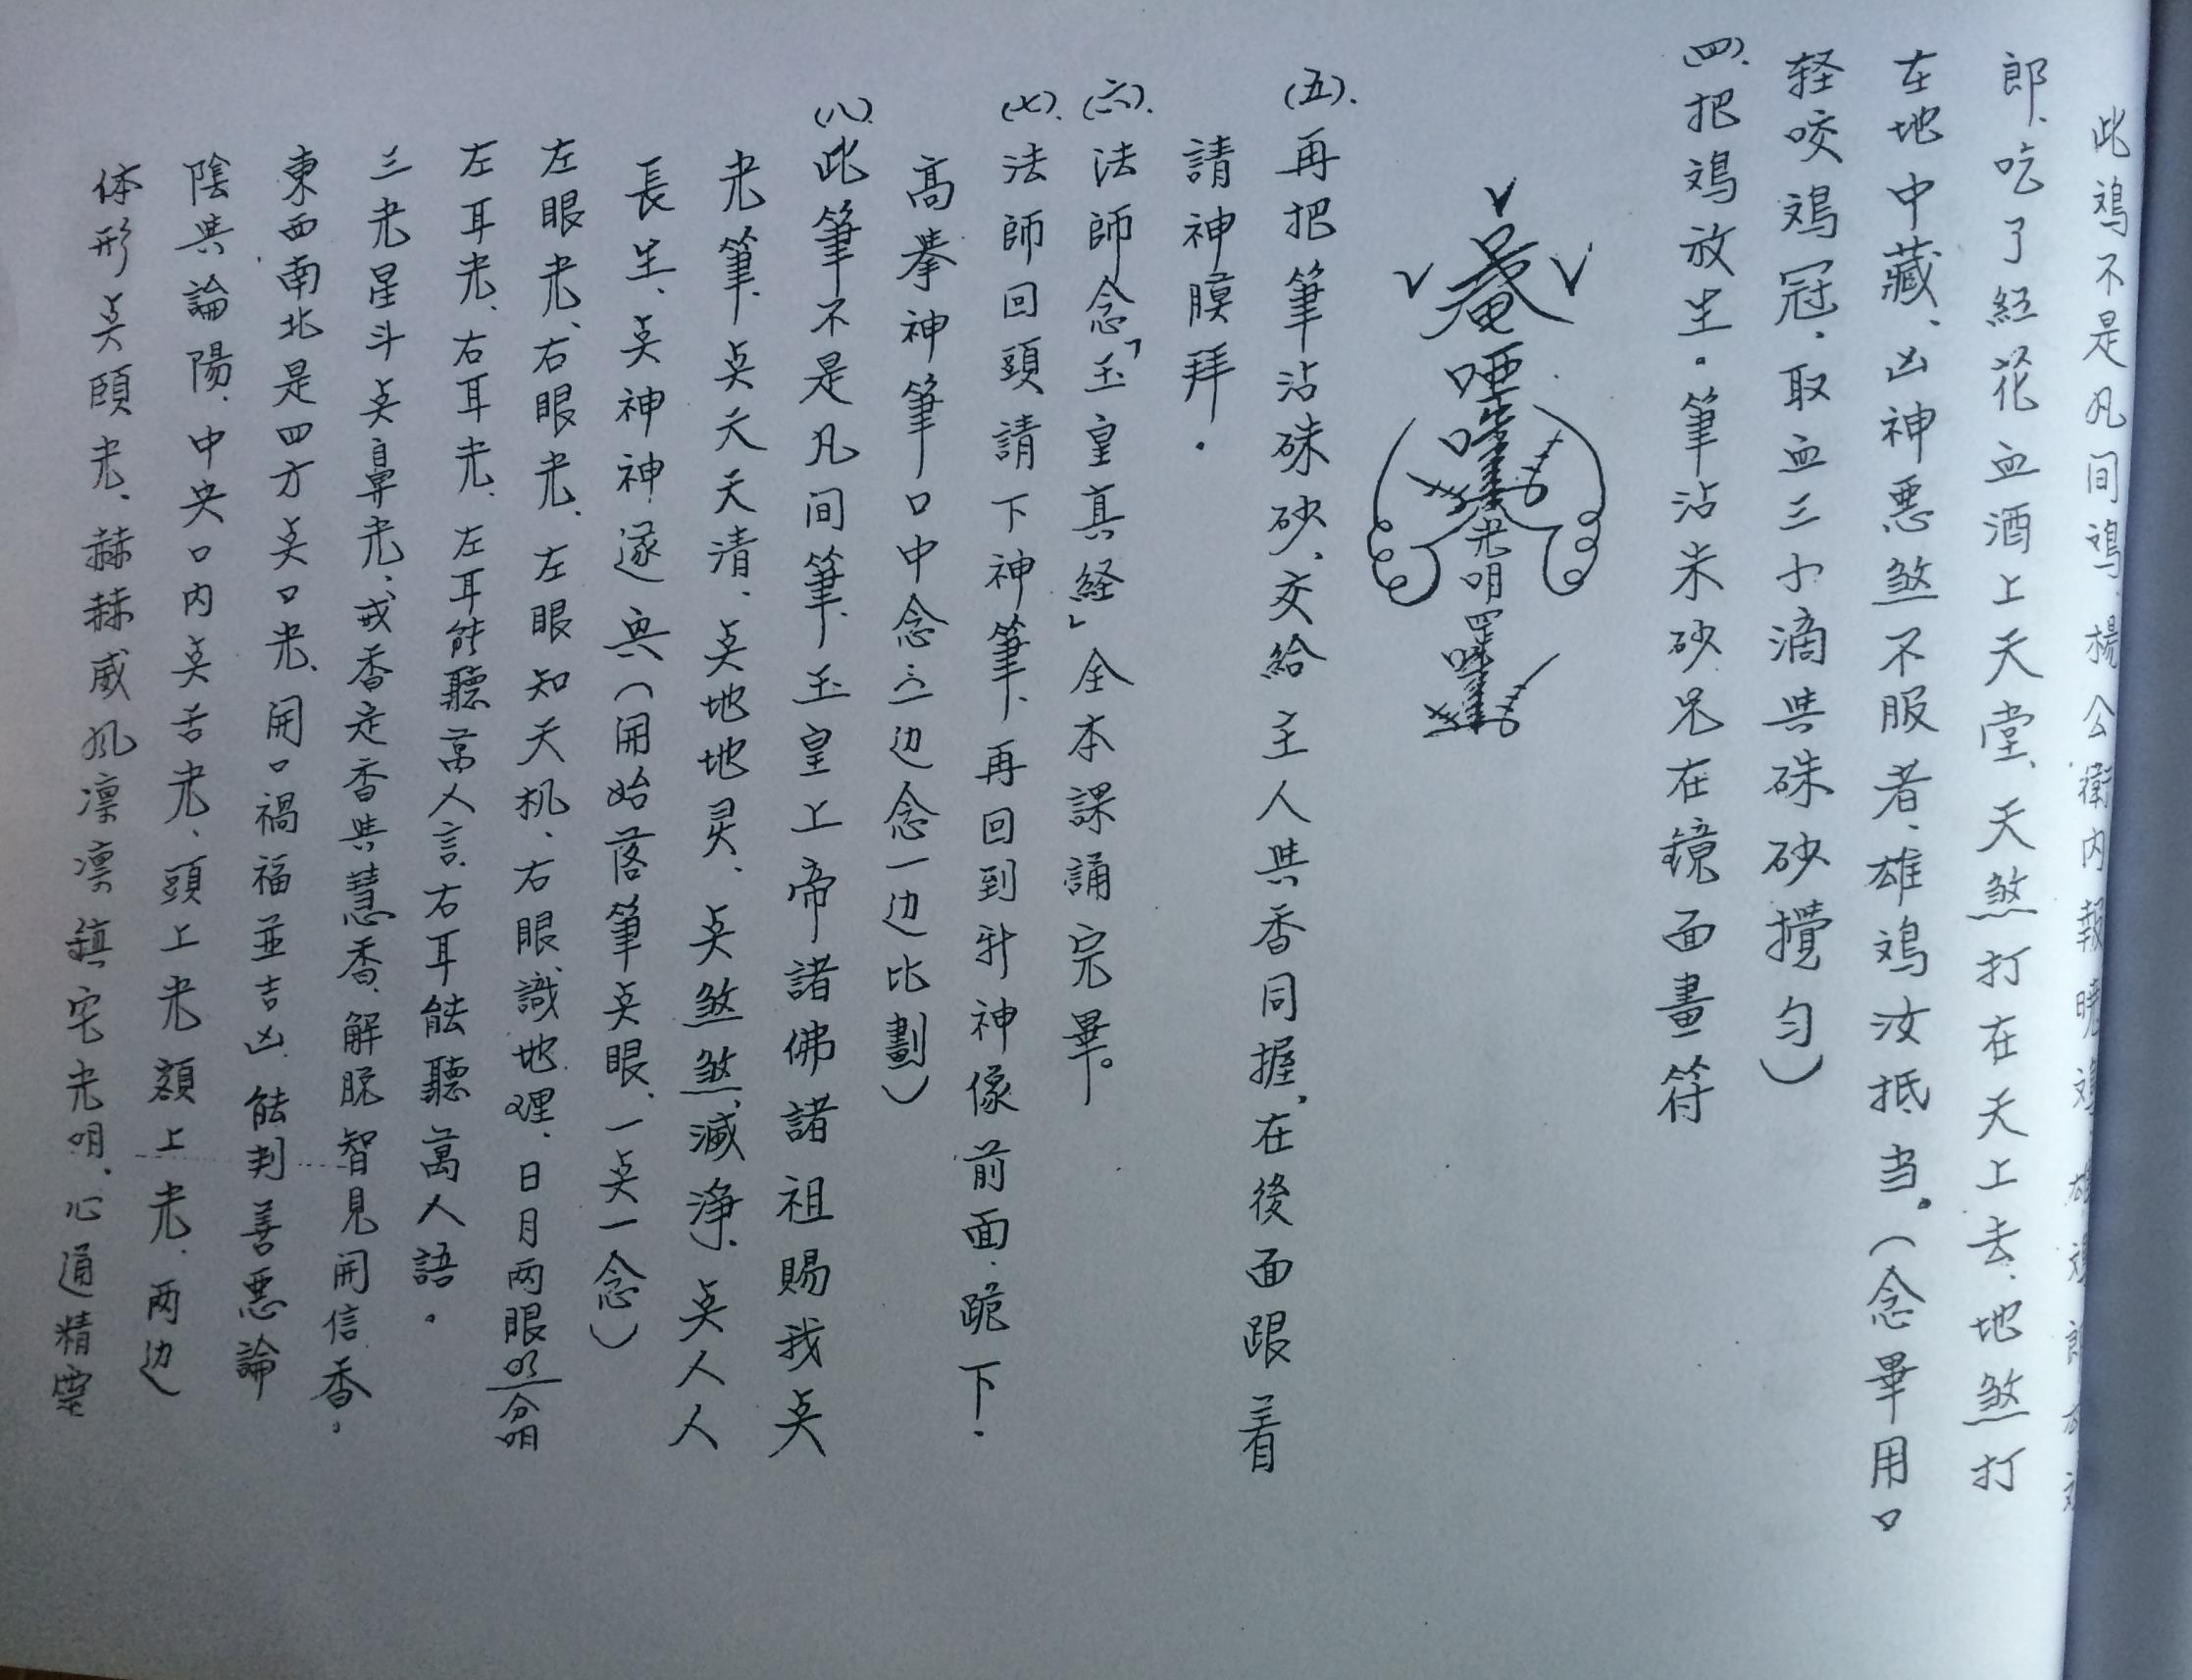 此鳮不是凡间鳮、楊公衛内報曉鳮、雄鳮郎
郎、吃了紅花血酒上天堂、天煞打在天上去、地煞打
在地中藏、凶神悪煞不服者、雄鳮汝抵当。（念畢用口
轻咬鳮冠、取血三小滴与硃砂攪匀）
四、把鳮放生。筆沾朱砂兄在鏡面畫符
唵
光明
(五)、再把筆沾硃砂、交給主人与香同握、在後面跟着
請神膜拜。
(六)、法師念「玉皇真経」全本課誦完畢。
(七)、法師回頭請下神筆、再回到新神像前面、跪下.
高拳神筆口中念（边念一边比劃）
(八)、此筆不是凡间筆、玉皇上帝諸佛諸祖賜我奌
光筆、奌天天清、奌地地灵、奌煞煞滅净、奌人人
長生、奌神神遂興（開始落筆奌眼、一奌一念）
左眼光、右眼光、左眼知天机、右眼識地理、日月两眼分明
左耳光、右耳光、左耳能聽萬人言、右耳能聽萬人語。
三光星斗奌鼻光、戒香定香与慧香、解脱智見開信香。
東西南北是四方奌口光、開口禍福並吉凶、能判善悪論
陰与論陽、中央口内奌舌光、頭上光額上光、两边
体形奌頣光、赫赫威风凛凛鎮宅光明、心通精霊